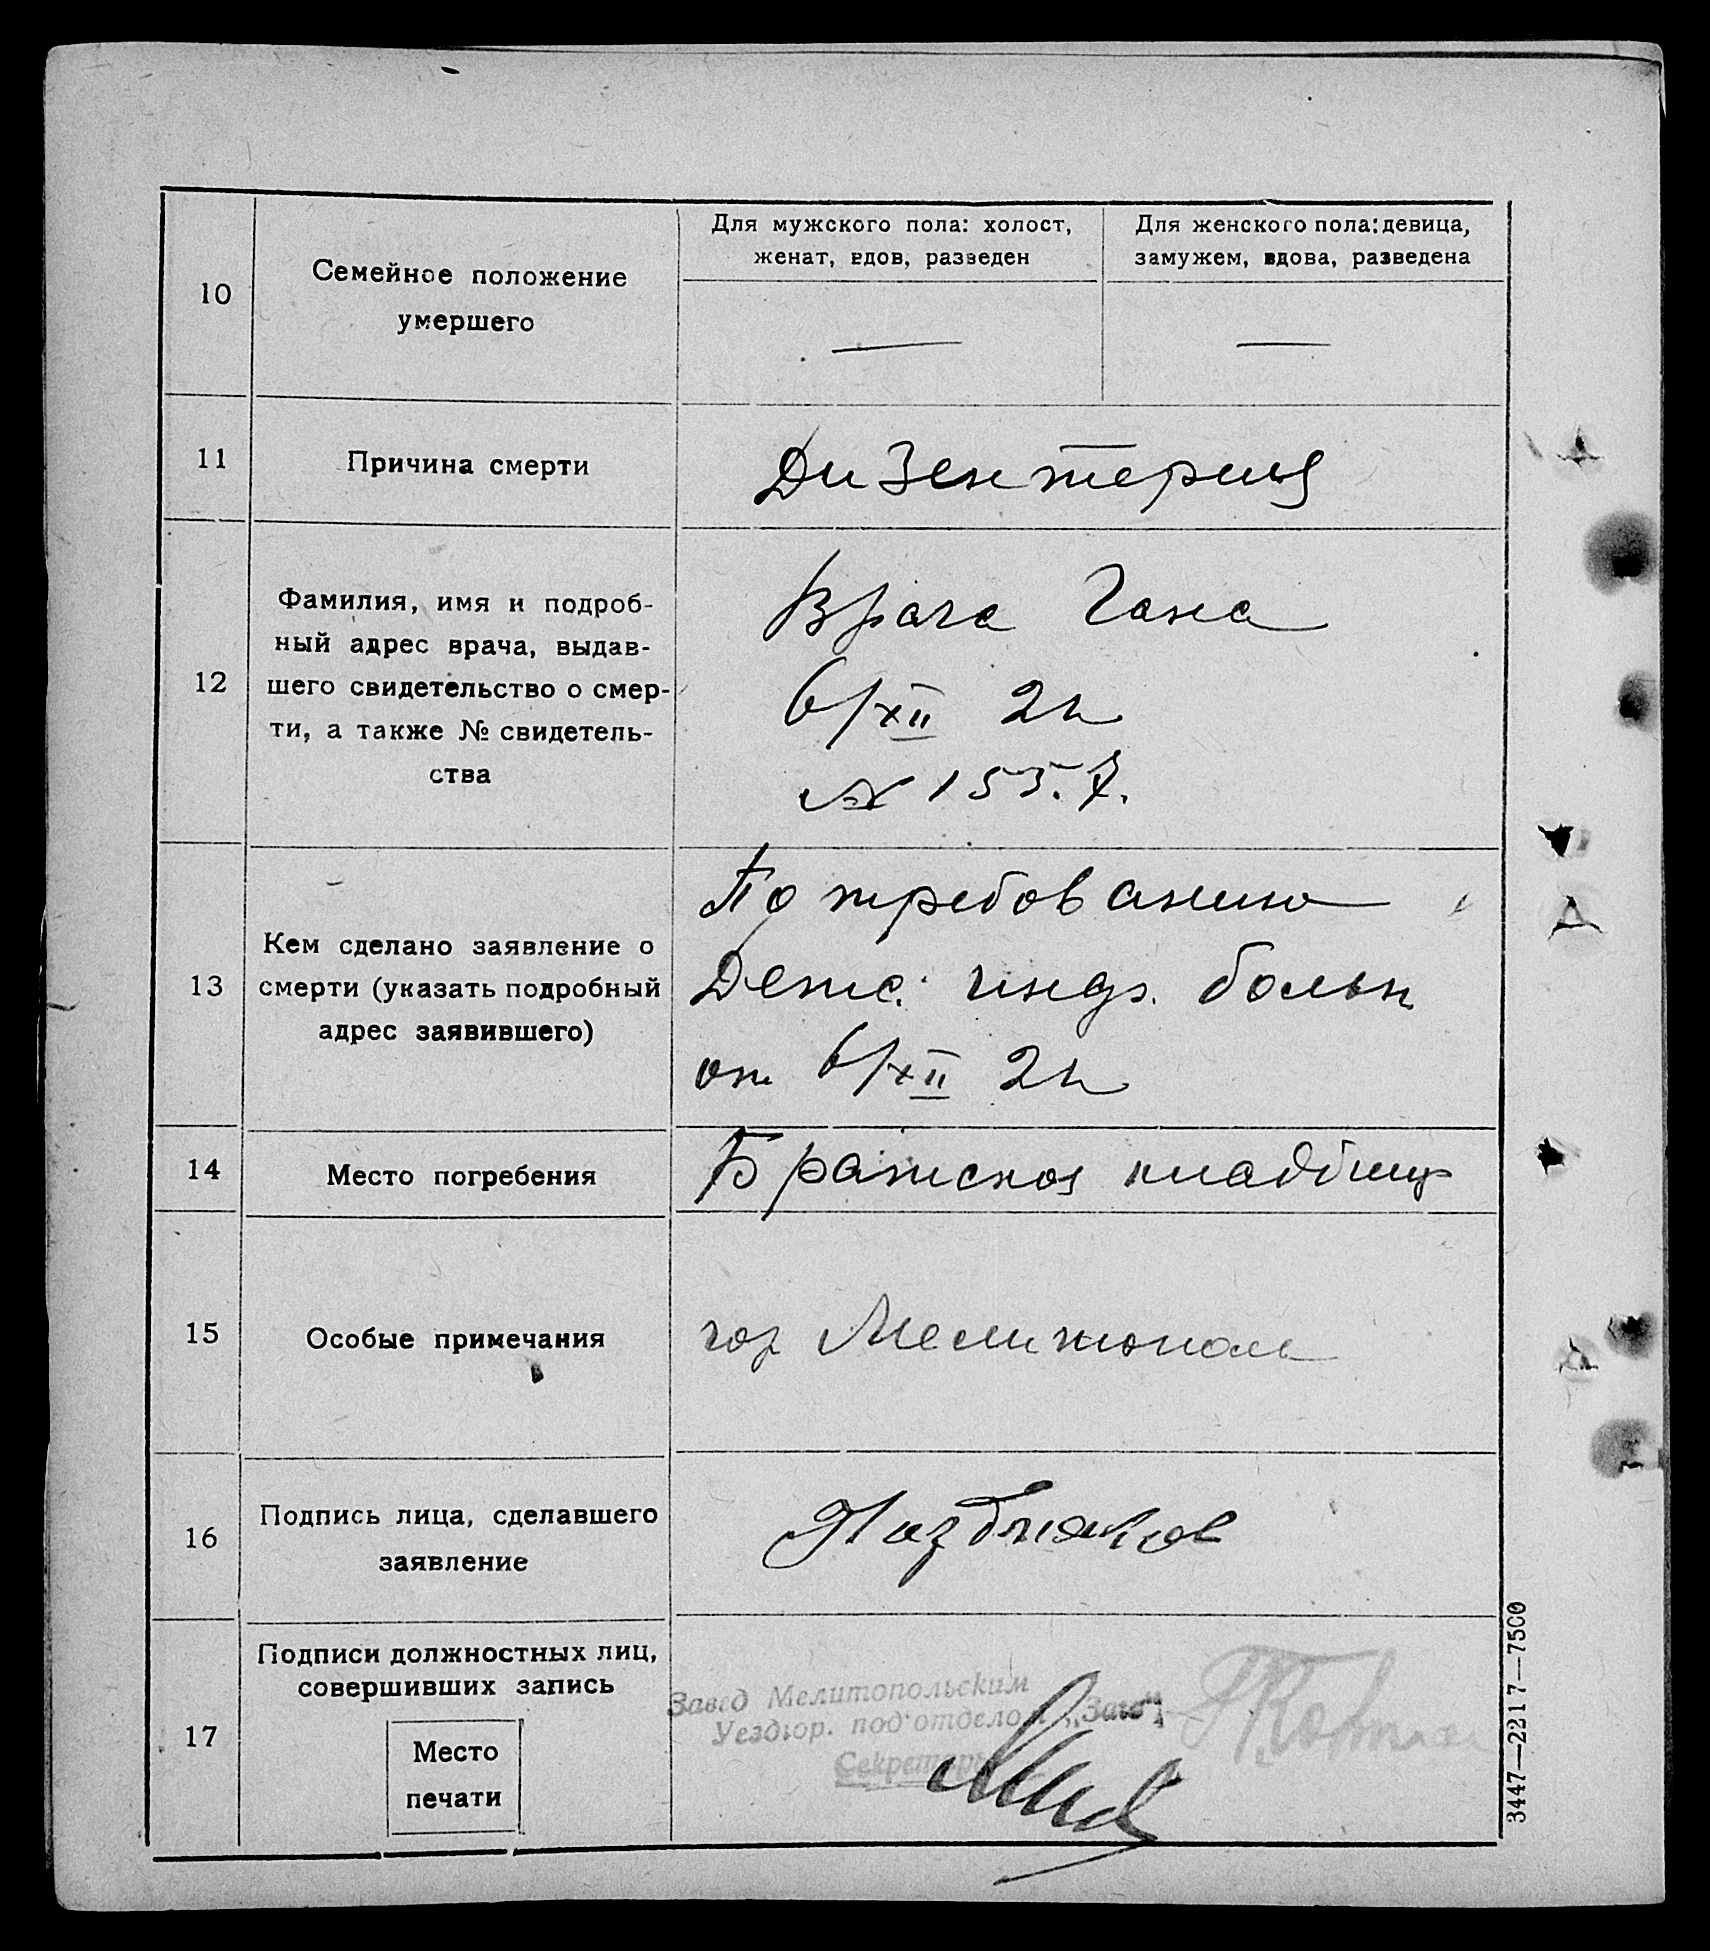 10
Семейное положение
умершего
Для мужского пола: холост,
женат, вдов, разведен
Для женского пола: девица,
замужем, вдова, разведена
—
—
11
Причина смерти
Дизентерия
12
Фамилия, имя и подроб-
ный адрес врача, выдав-
шего свидетельство о смер-
ти, а также № свидетель-
ства
Врача Гана
6/XII 21
№ 155.7.
13
Кем сделано заявление о
смерти (указать подробный
адрес заявившего)
По требованию
больн
от 6/XII 21
14
Место погребения
Братское кладбище
15
Особые примечания
гор Мелитополь
16
Подпись лица, сделавшего
заявление
17
Подписи должностных лиц,
совершивших запись
Место
печати
Завед Мелитопольским
Уездюр. под'отделом „Загс"
Секретарь
3447—2217—7500